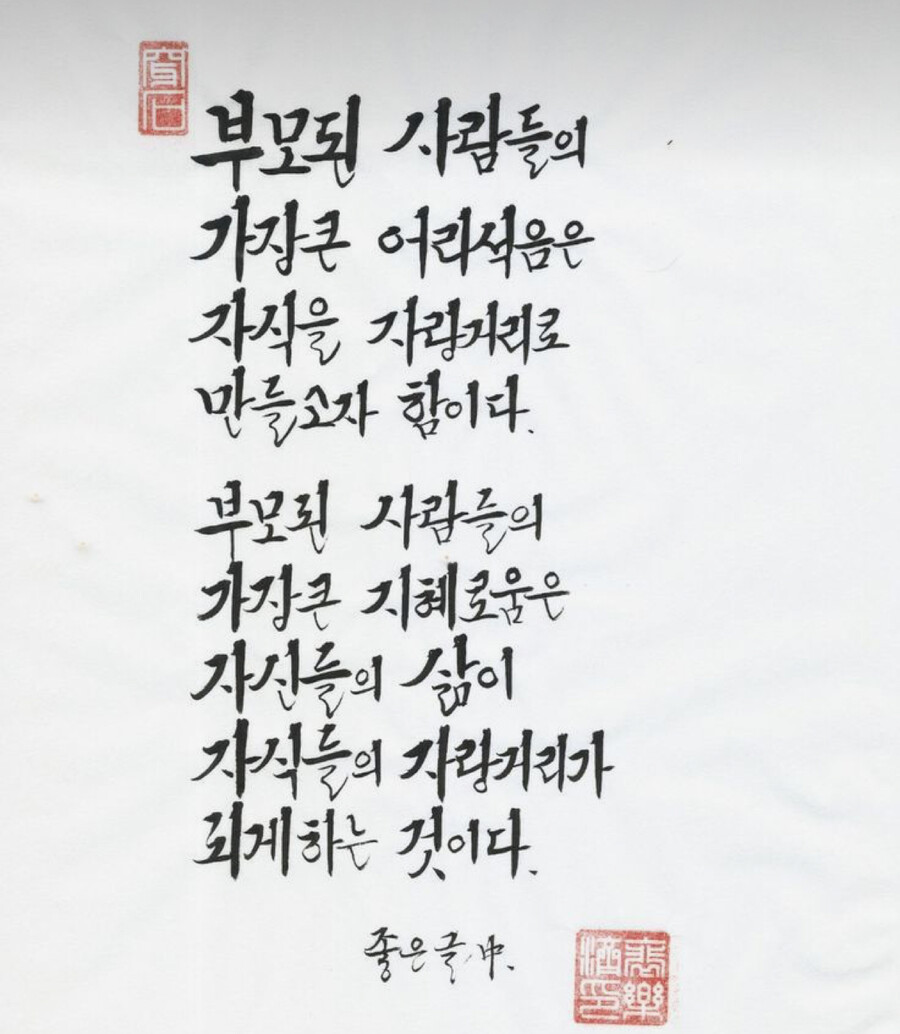 부모된 사람들의
가장큰 어리석음은
자식을 자랑거리로
만들고자 함이다.
부모된 사람들의
가장큰 지혜로움은
자신들의 삶이
자식들의 자랑거리가
되게하는 것이다.
좋은글 中.